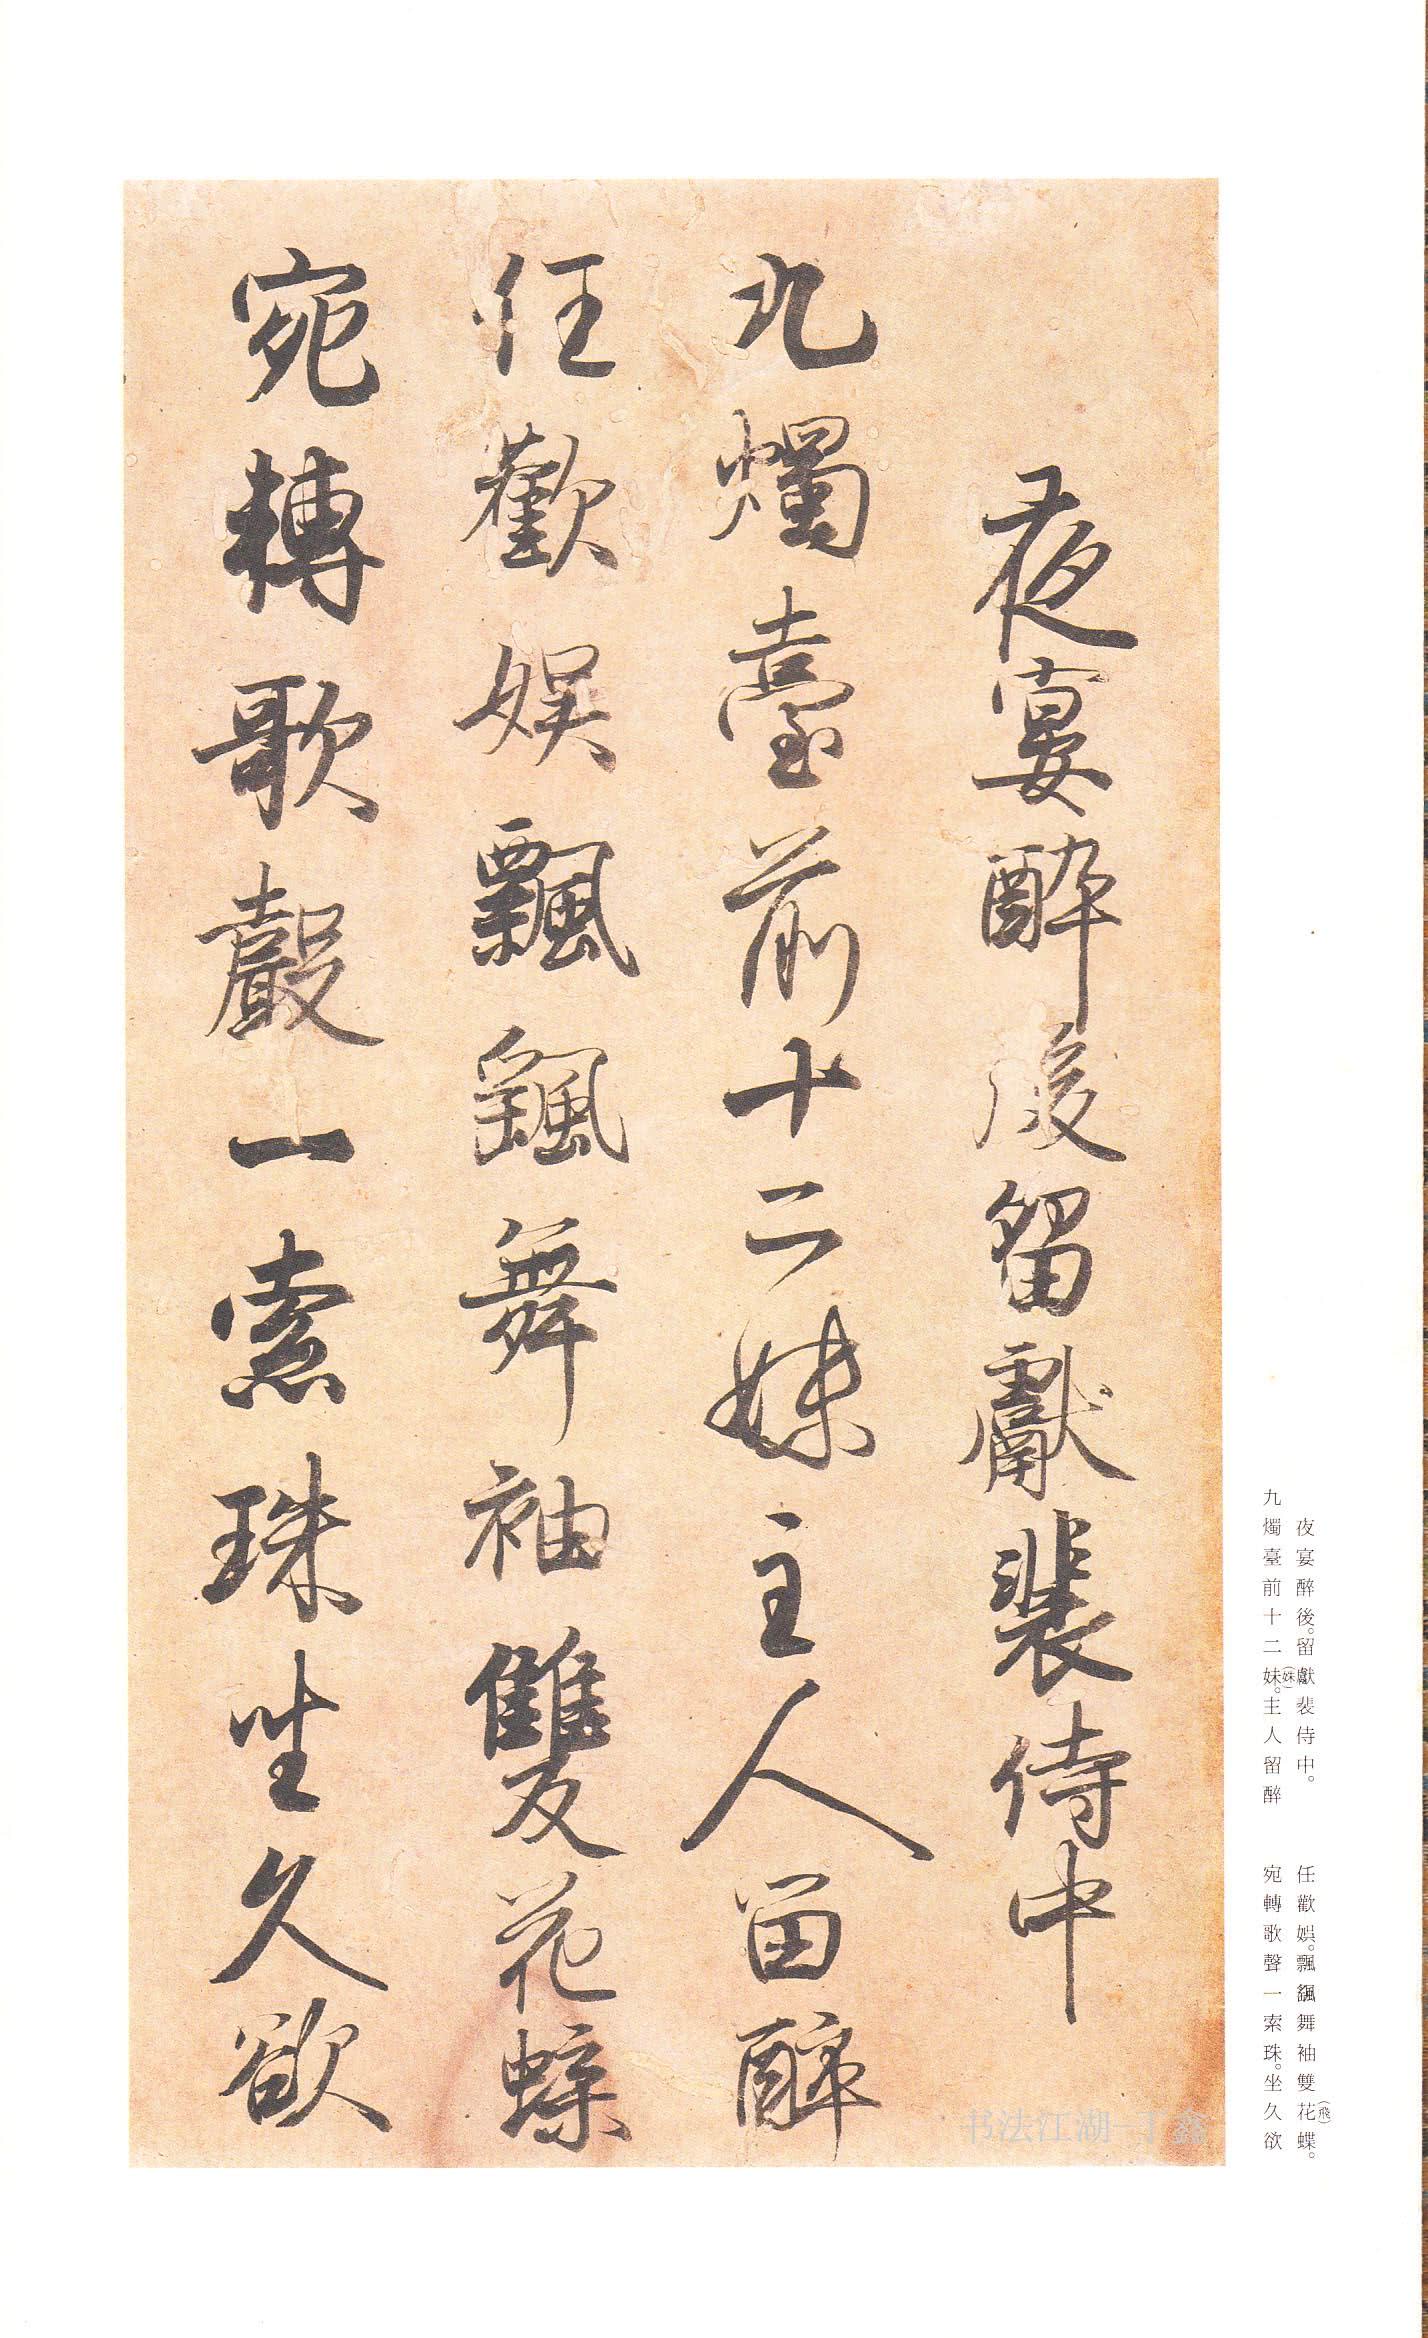 夜宴醉後留獻裴侍中
九燭臺前十二妹主人留醉
任歡娛飄颻舞袖雙花蝶
宛轉歌聲一索珠坐久欲
夜宴醉後。留獻裴侍中。
九燭臺前十二妹(姝)。主人留醉
任歡娛。飄颻舞袖雙花(飛)蝶。
宛轉歌聲一索珠。坐久欲